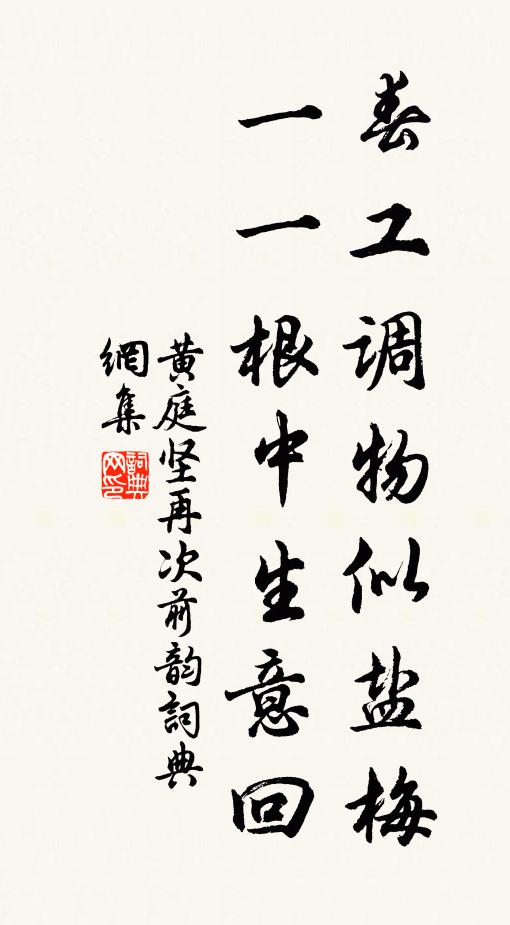 春工调物似盐梅
一一根中生意回
黄庭坚再次前韵詞典
網集
詞典网印